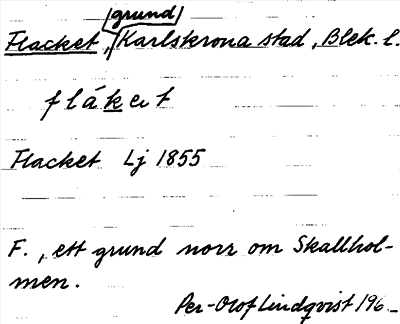 Flacket, grund, Karlskrona stad, Blek. l.
fláket
Flacket Lj 1855
F., ett grund norr om Skallhol-
men.
Per-Olof Lindqvist 196_